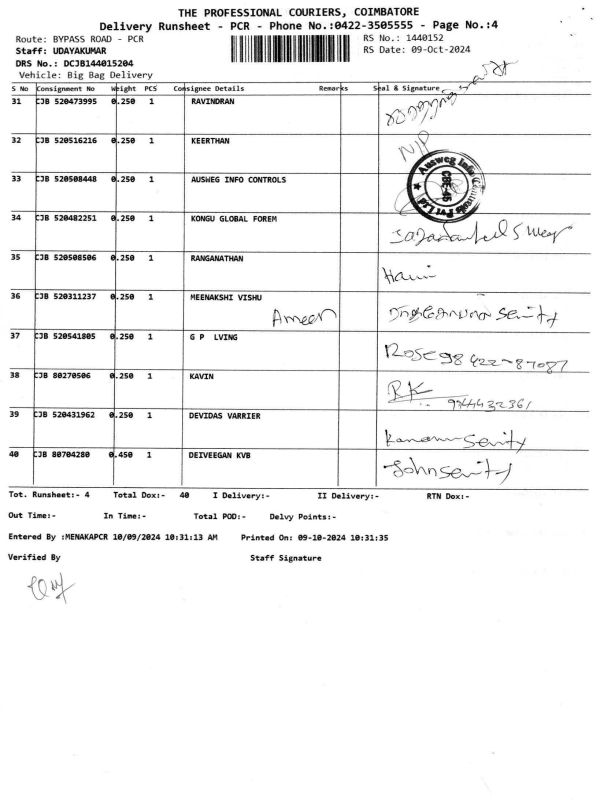 THE PROFESSIONAL COURIERS, COIMBATORE
Delivery Runsheet - PCR - Phone No.:0422-3505555 - Page No.:4
Route: BYPASS ROAD - PCR RS No.: 1440152
Staff: UDAYAKUMAR RS Date: 09-Oct-2024
DRS No.: DCJB144015204
Vehicle: Big Bag Delivery
S No Consignment No Weight PCS Consignee Details Remarks Seal & Signature
31 CJB 520473995 0.250 1 RAVINDRAN
32 CJB 520516216 0.250 1 KEERTHAN N/P
33 CJB 520508448 0.250 1 AUSWEG INFO CONTROLS Ausweg Info Controls Pvt Ltd CBE-45
34 CJB 520482251 0.250 1 KONGU GLOBAL FOREM
35 CJB 520508506 0.250 1 RANGANATHAN Hari
36 CJB 520311237 0.250 1 MEENAKSHI VISHU Ameer
37 CJB 520541805 0.250 1 G P LVING ROSE 98422-87087
38 CJB 80270506 0.250 1 KAVIN RK
39 CJB 520431962 0.250 1 DEVIDAS VARRIER
40 CJB 80704280 0.450 1 DEIVEEGAN KVB John
Tot. Runsheet:- 4 Total Dox:- 40 I Delivery:- II Delivery:- RTN Dox:-
Out Time:- In Time:- Total POD:- Delvy Points:-
Entered By :MENAKAPCR 10/09/2024 10:31:13 AM Printed On: 09-10-2024 10:31:35
Verified By Staff Signature